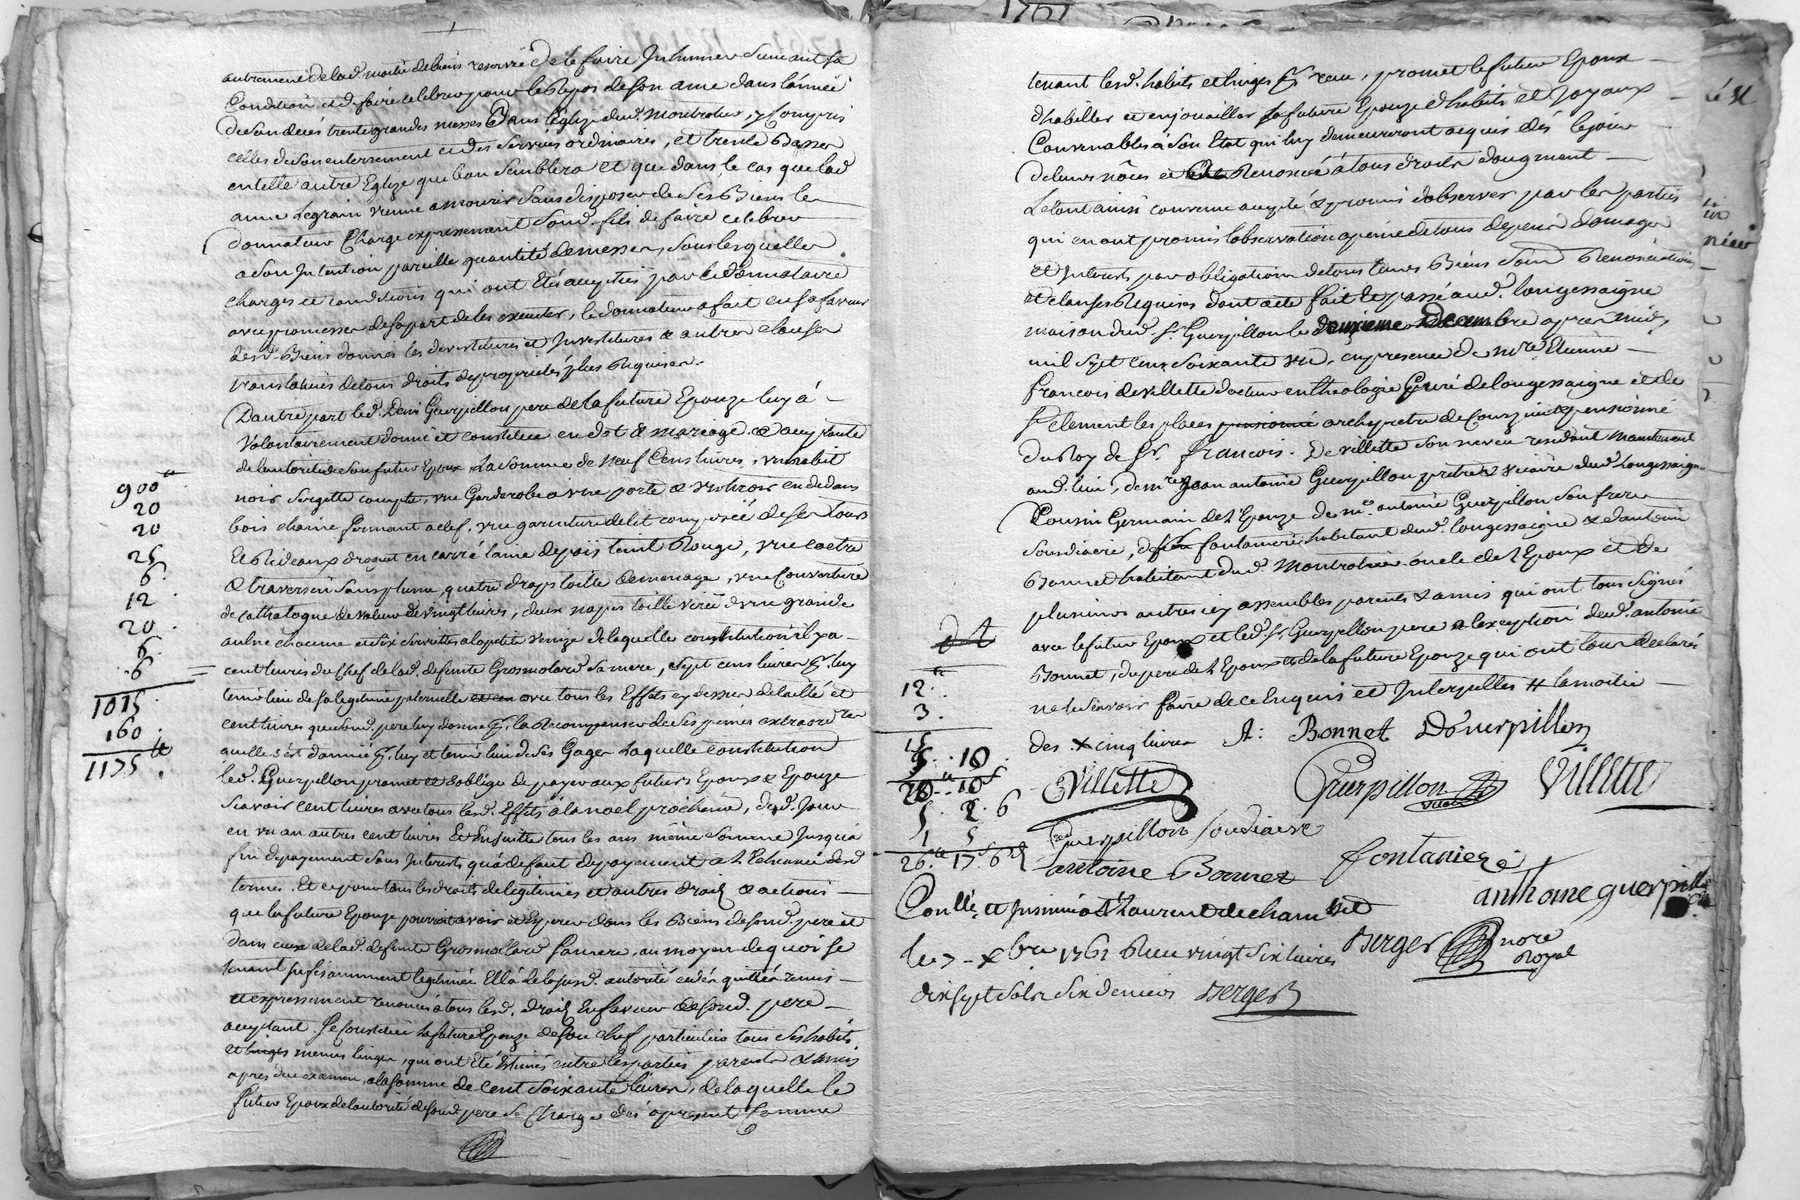 autrement de lad. moitié de biens reservée de le faire Inhumer suivant sa
Condition et d. faire celebrer pour le Repos de son ame dans l'année
de son decés trente grandes messes Dans l'église dud. Montrotier, y Compris
celles de son enterrement et des services ordinaires, et trente Basses
en telle autre Eglize que bon semblera et que dans le cas que lad
anne Legrain vienne a mourir sans disposer de ses Biens le
donnateur Charge expressement sond. fils de faire celebrer
a son Intention pareille quantité de messes, sous lesquelles
charges et conditions qui ont etés acceptées par le donnataire
avec promesses de sa part de les executer, le donnateur a fait en sa faveur
desd. Biens donnés les devestitures et Investitures & autres clauses
translatives de tous droits de proprietés plus Requises.
D'autre part led. Denis Guerpillon pere de la future Epouze luy á
Volontairement donné et constitué en dot & mariage & acceptante
de l'autorité de son futur Epoux la somme de neuf Cens livres, un habit
noir sergette compté, une Garderobe a une porte & un tiroir en dedans
bois chaine fermant a clef, une garniture de lit composée de ses tours
Et Rideaux droguet en carré laine depois teint Rouge, une coetre
& traversin sans plume, quatre draps toille de menage, une Couverture
de cathalogne de valeur de vingt livres, deux napes toille tirée d'une grande
aulne chacune et six serviettes a la petite venize de laquelle constitution il y a
cent livres du Chef de lad. defunte Grosmolard sa mere, sept cens livres pr. luy
tenir lieu de sa legitime paternelle avec tous les Effets cy dessus detaillé et
cent livres que sond. pere luy donne pr. la Recompenser de ses peines extraordres
qu'elle s'est donnée pr. luy et tenir lieu de ses Gages Laquelle constitution
led. Guerpillon promet et s'oblige de payer aux futurs Epoux & Epouze
scavoir cent livres avec tous lesd. Effets á la noel prochaine, dud. Jour
en un an autres cent livres Et Ensuitte tous les ans même somme Jusqu'á
fin de payement sans Interests qu'á defaut de payement a l'Echeance desd
termes. Et ce pour tous les droits de legitimes et autres droits & actions
que la future Epouze pourroit avoir et Esperer dans les Biens de sond. pere et
dans ceux de lad. defunte Grosmollard sa mere, au moyen de quoi se
tenant suffisamment legitimée Elle á de la susd. autorité cedé quitté remis
et expressement renoncé a tous lesd. droits En faveur de sond. pere
acceptant Se Constitue la future Epouze de son chef particulier tous ses habits
et linges menus linges, qui ont été Estimés entre les parties parents & amis
apres due examen, a la somme de cent soixante livres, de laquelle le
futur Epoux de l'autorité de sond. pere se Charge dés apresent Comme
900 tt
20
20
25
6
12
20
6
6
1015
160
1175 tt
tenant lesd. habits et linges pr. recu, promet le futur Epoux
d'habiller et enjouailler sa future Epouze d'habits et Joyaux
Convenables á son Etat qui luy demeureront acquis dés le jour
de leurs nôces et Renoncé á tous droits d'augment
Le tout ainsi convenu accepté & promis d'observer par les parties
qui en ont promis l'observation a peine de tous depens domages
et Interets par obligation de tous leurs Biens soumd Renonciations
et clauses Requises dont acte fait et passé aud. longessaigne
maison dud. Sr. Guerpillon le deuxieme Decembre apres midy
mil sept cens soixante un, en presence de mre. Etienne
francois devillette docteur en theologie Curé de longessaigne et de
St. Clement les places archypretre de courzieu et pensionné
du Roy de Sr. francois. De villette son neveu residant maintenant
aud. lieu, de mre. Jean antoine Guerpillon pretre & vicaire dud. Longessaigne
Cousin Germain de l'Epouze de mre. antoine Guerpillon son frere
Sousdiacre, de fontaniere habitant dud. longessaigne & d'antoine
Bonnet habitant dud. Montrotier oncle de l'Epoux et de
plusieurs autres icy assembles parents & amis qui ont tous signés
avec le futur Epoux et led. Sr. Guerpillon pere a l'exception dud. antoine
Bonnet, du pere de l'Epoux et de la future Epouze qui ont tous declarés
ne le scavoir faire de ce Enquis et Interpellés # la moitié
des x cinq livres A: Bonnet D Guerpillon
12 tt
3
15
5 10
20 tt 10 s
5 2 6
1 5
26 tt 17 s 6 d
Villette Guerpillon vicaire Villette
Guerpillon soudiacre
antoine Bonnet fontaniere
anthoine guerpillon
Conllé, et Insinué á St Laurent de chamousset
le 7 - xbre 1761 Receu vingt six livres
dix sept sols six deniers Berger
Berger nore Royal